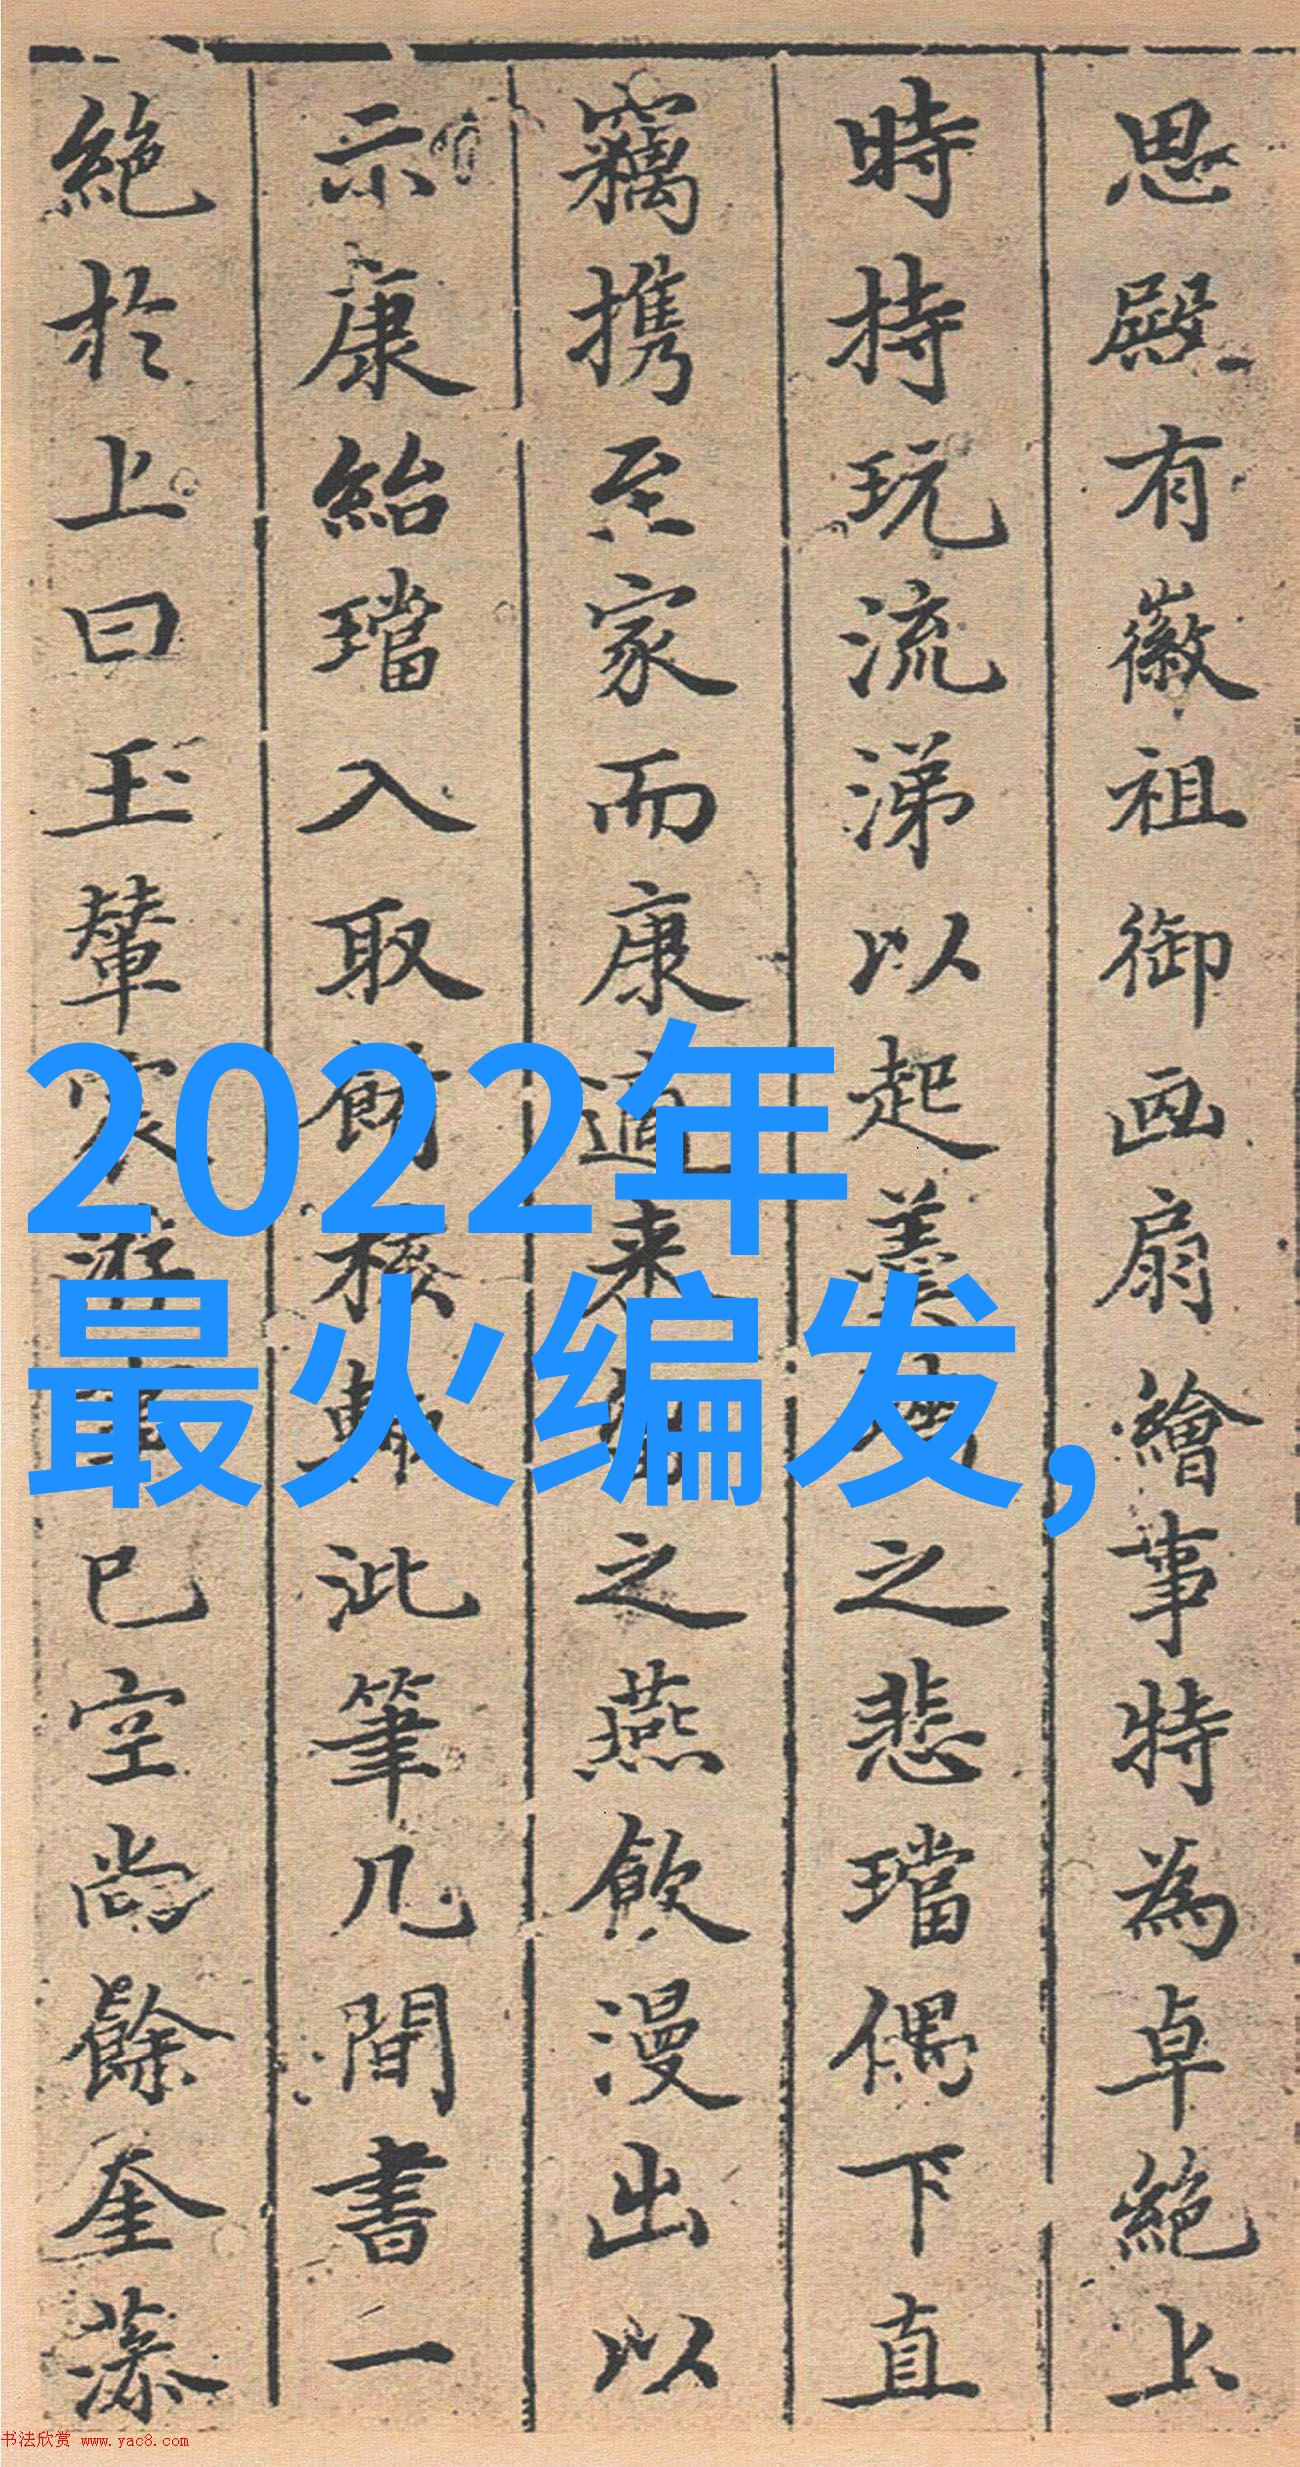 思殿有徽祖御画扇繪事特為卓絶上
時持玩流涕以起羹墻之悲璫偶下直
竊携至家而康適来之燕飲漫出以
示康紿璫入取殽核輒泚筆几間書一
絶於上曰玉輦宸游事已空尚餘奎藻
2022年
最火编发,
书法欣赏 www.yac8.com